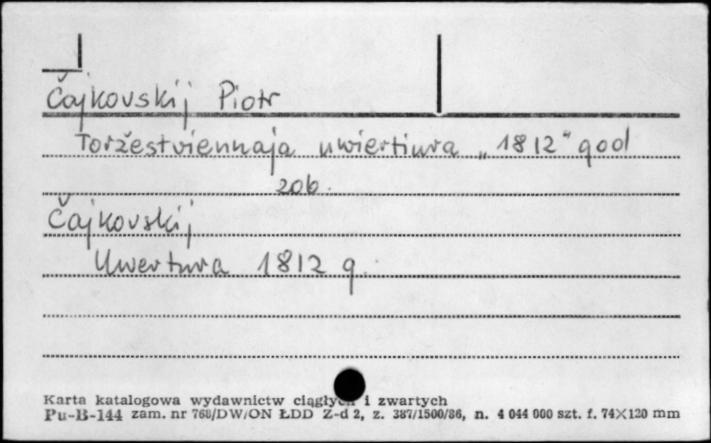 Čajkovskij Piotr
Toržestviennaja uwiertiura „1812" god
zob.
Čajkovskij
Uwertura 1812 g.
Karta katalogowa wydawnictw ciągłych i zwartych
Pu-B-144 zam. nr 768/DW/ON ŁDD Z-d 2, z. 387/1500/86, n. 4 044 000 szt. f. 74×120 mm